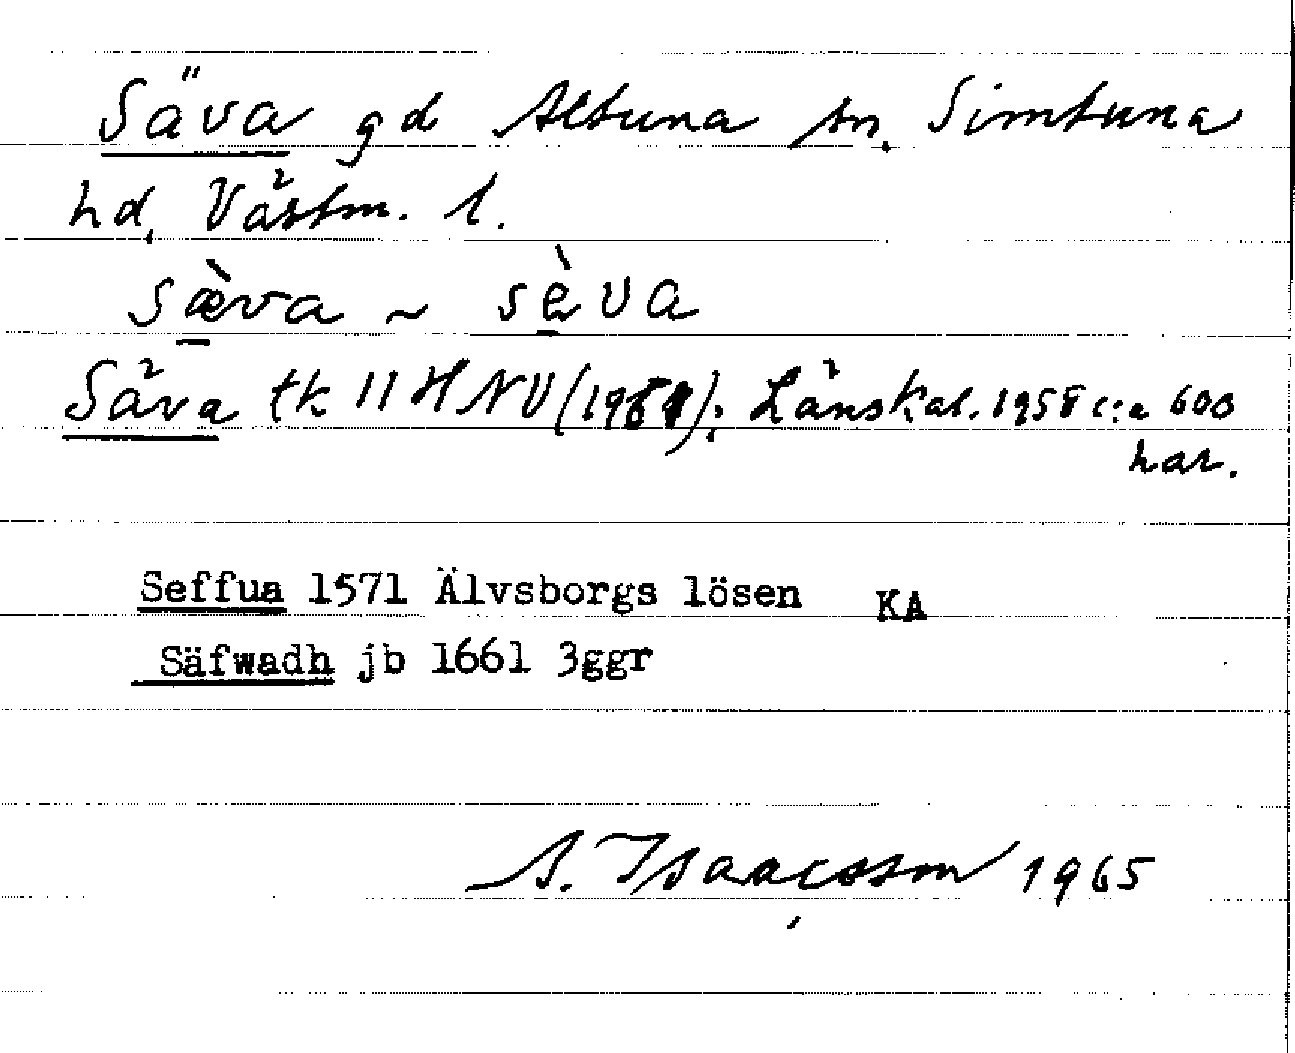 Säva gd Altuna sn. Simtuna
hd, Västm. l.
sæ̀va ~ sèva
Säva tk 11 H NV ; Länskal. 1958 c:a 600
har.
Seffua 1571 Älvsborgs lösen KA
Säfwadh jb 1661 3ggr
Isaacsson 1965